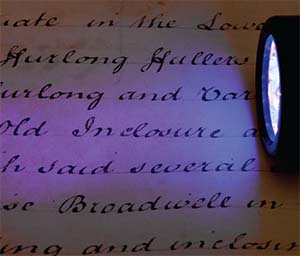 uate in the Lowe
Hurlong Hullers
urlong and Var
Old Inclosure a
h said several
se Broadwell in
ing and inclosin